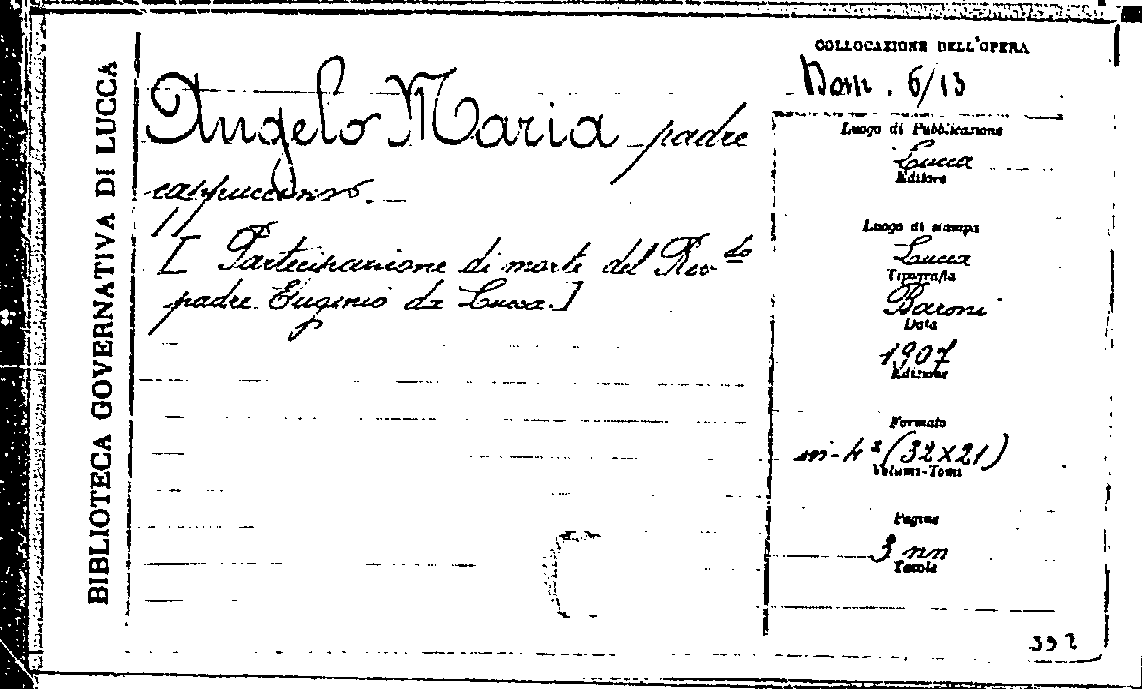 BIBLIOTECA GOVERNATIVA DI LUCCA
Angelo Maria padre
cappuccino.
[Partecipazione di morte del Rev.do
padre Eugenio da Lucca.]
COLLOCAZIONE DELL'OPERA
6/13
Luogo di Pubblicazione
Lucca
Editore
Luogo di stampa
Lucca
Tipografia
Baroni
Data
1907
Edizione
Formato
in-4° (32x21)
Volumi-Tomi
Pagine
3 nn
Tavole
392